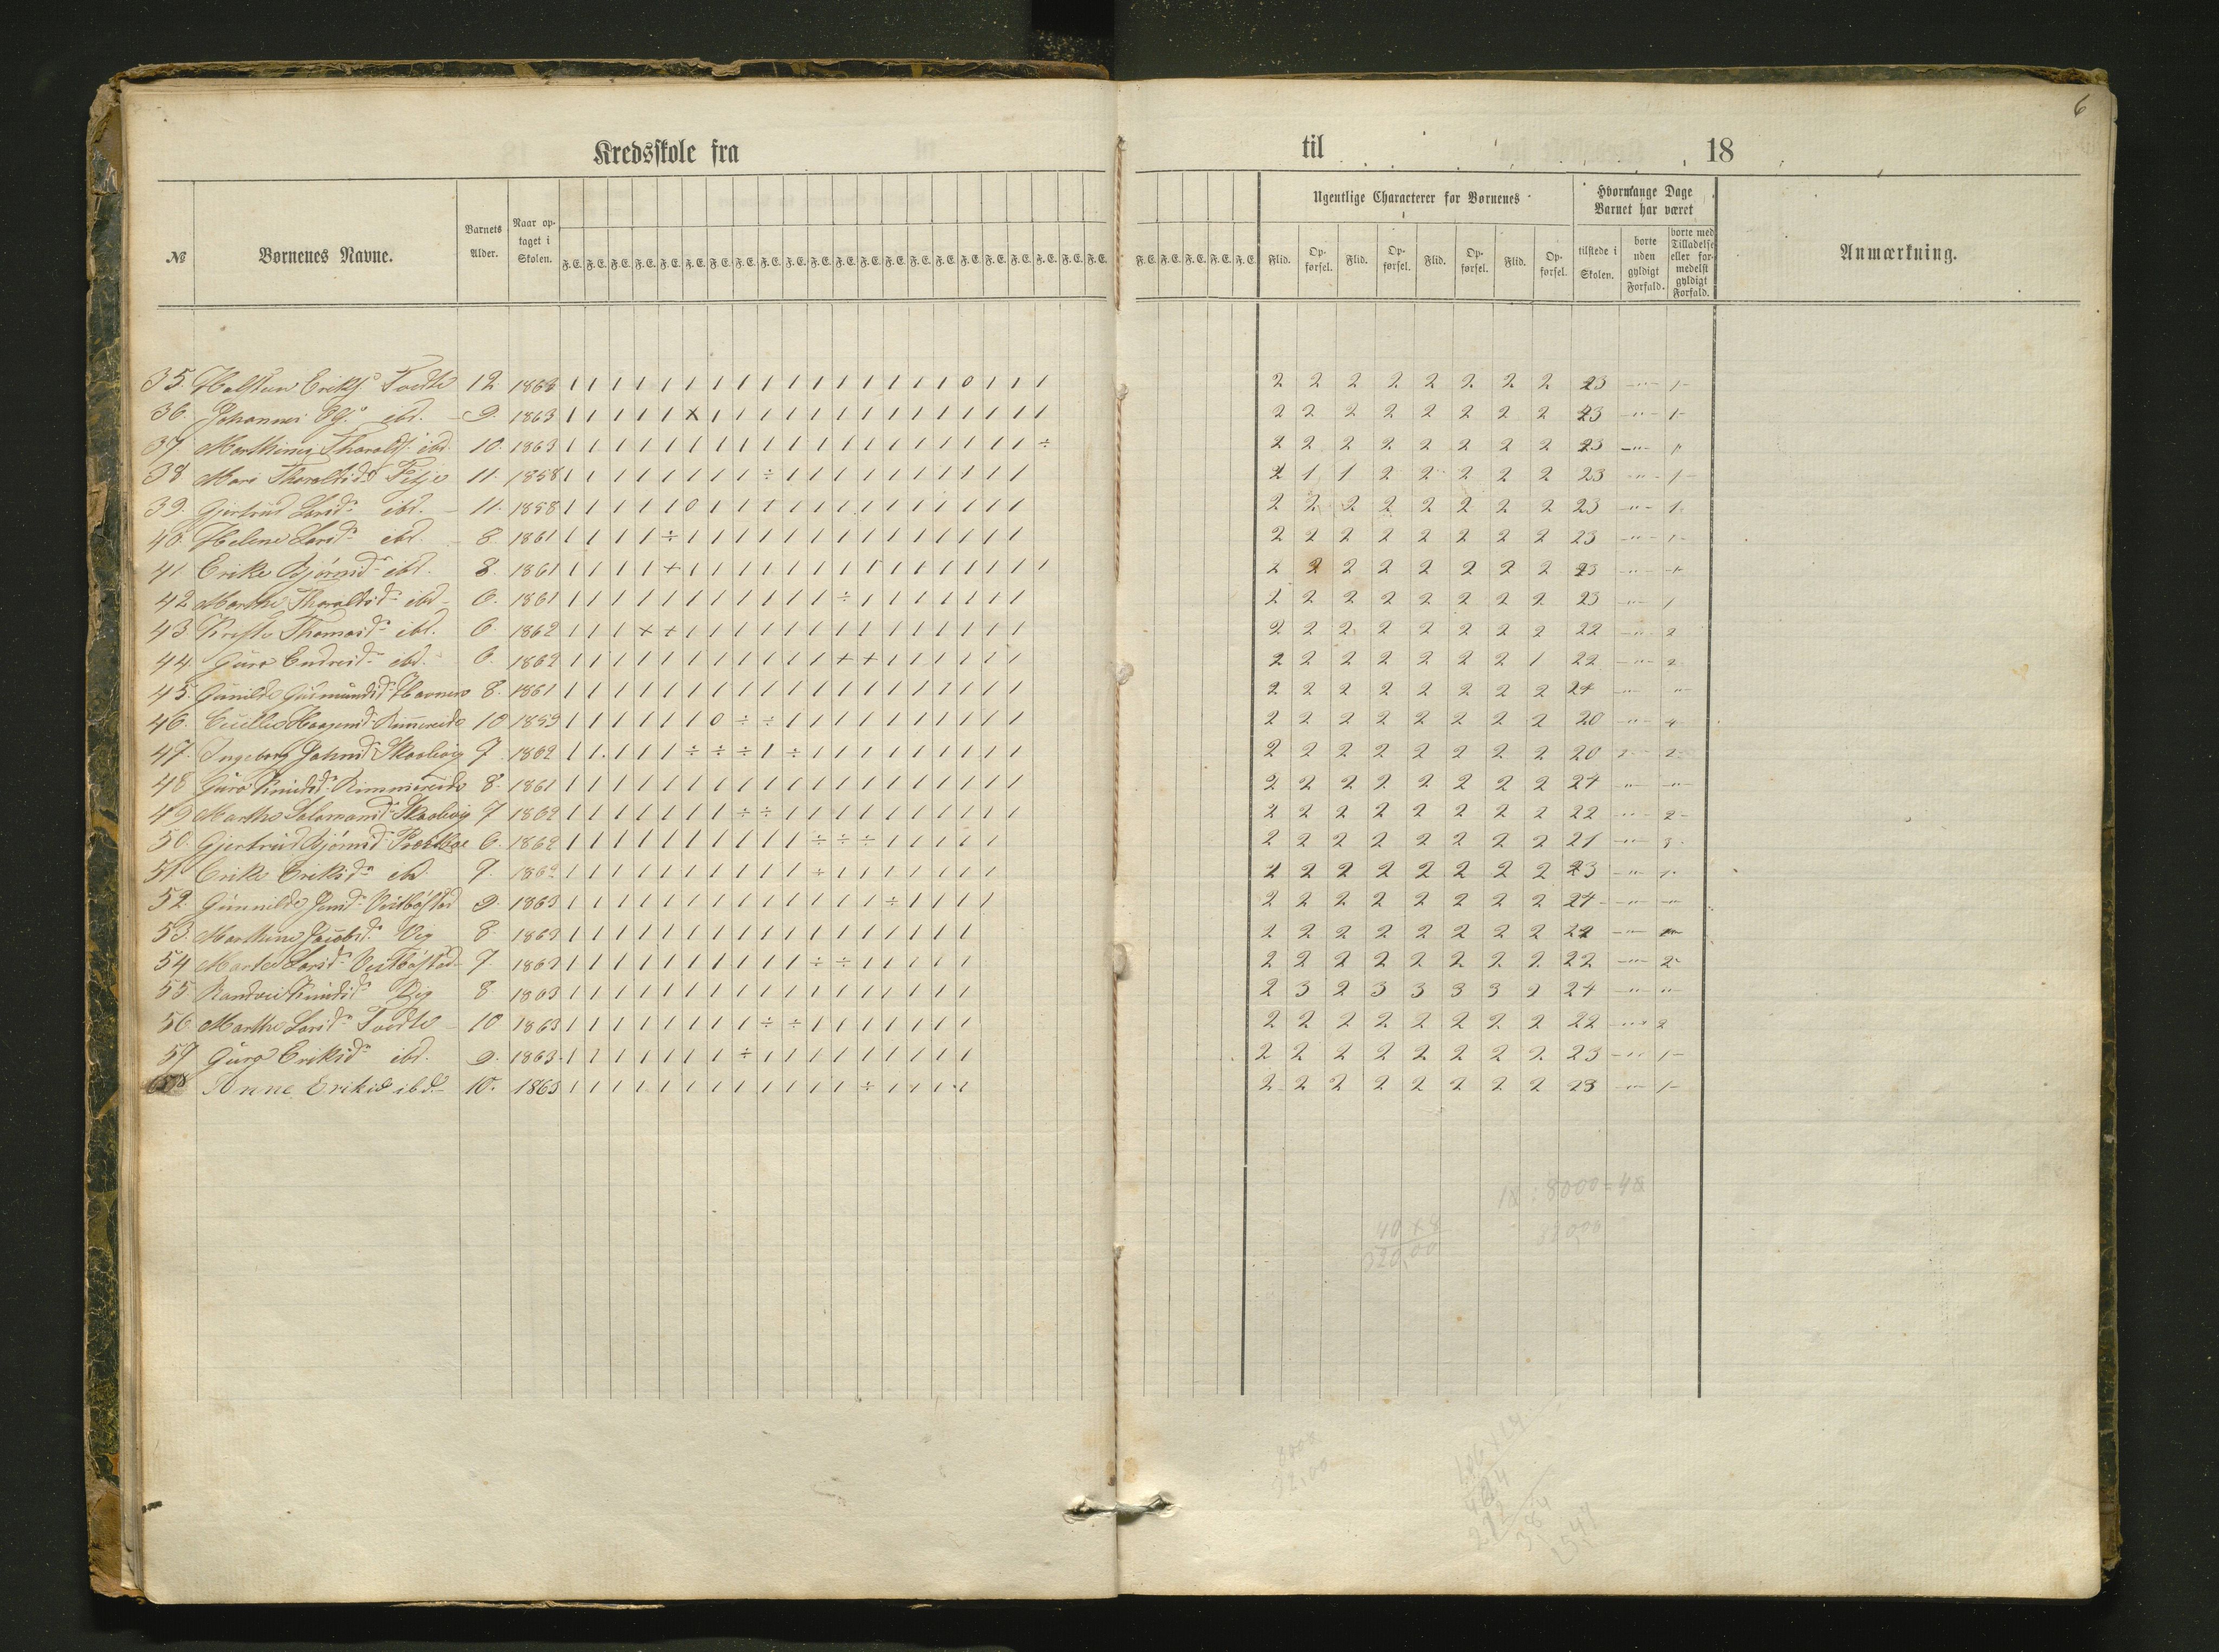 6
Kredsskole fra til 18
№ Børnenes Navne. Barnets Alder. Naar optaget i Skolen. F. E. F. E. F. E. F. E. F. E. F. E. F. E. F. E. F. E. F. E. F. E. F. E. F. E. F. E. F. E. F. E. F. E. F. E. F. E. F. E. F. E. F. E. F. E. F. E. F. E. F. E. F. E.
Ugentlige Characterer for Børnenes
Flid. Opførsel. Flid. Opførsel. Flid. Opførsel. Flid. Opførsel.
Hvormange Dage Barnet har været
tilstede i Skolen. borte uden gyldigt Forfald. borte med Tilladelse eller formedelst gyldigt Forfald.
Anmærkning.
35. Halsten Eriks. Tvedte 12 1863 1 1 1 1 1 1 1 1 1 1 1 1 1 1 1 1 0 1 1 1 2 2 2 2 2 2 2 2 23 -"- 1-
36. Johannes ibd. 9. 1863 1 1 1 1 1 x 1 1 1 1 1 1 1 1 1 1 1 1 1 1 2 2 2 2 2 2 2 2 23 -"- 1-
37 Marthinus Tharalds. ibd. 10. 1863 1 1 1 1 1 1 1 1 1 1 1 1 1 1 1 1 1 1 1 ÷ 2 2 2 2 2 2 2 2 23 -"- 1-
38 Mari Tharaldsd. Fitje 11. 1858 1 1 1 1 1 1 1 1 ÷ 1 1 1 1 1 1 1 1 1 1 2 1 1 2 2 2 2 2 23 -"- 1-
39. Gjertrud Larsd. ibd. 11. 1858 1 1 1 1 1 0 1 1 1 1 1 1 1 1 1 1 1 1 1 2 2 2 2 2 2 2 2 23 -"- 1.
40. Helene Larsd. ibd. 8. 1861 1 1 1 1 ÷ 1 1 1 1 1 1 1 1 1 1 1 1 1 1 2 2 2 2 2 2 2 2 23 -"- 1-
41 Erike Bjørnsd. ibd. 8. 1861 1 1 1 1 + 1 1 1 1 1 1 1 1 1 1 1 1 1 1 1 2 2 2 2 2 2 2 2 23 -"- 1-
42 Marthe Tharaldsd. ibd. 6. 1861 1 1 1 1 1 1 1 1 1 1 1 ÷ 1 1 1 1 1 1 1 2 2 2 2 2 2 2 2 23 -"- 1
43 Thomasd. ibd. 6. 1862 1 1 1 x + 1 1 1 1 1 1 1 1 1 1 1 1 1 1 2 2 2 2 2 2 2 2 22 -"- 2
44. Guro Endresd. ibd. 6. 1862 1 1 1 1 1 1 1 1 1 1 1 + + 1 1 1 1 1 1 2 2 2 2 2 2 2 1 22 -"- 2
45. Gunilde Gudmundsd. Havnen 8. 1861 1 1 1 1 1 1 1 1 1 1 1 1 1 1 1 1 1 1 1 2 2 2 2 2 2 2 2 24 -"- "-
46. Haagensd. Rimmereide 10 1859 1 1 1 1 1 1 0 ÷ ÷ 1 1 1 1 1 1 1 1 1 1 2 2 2 2 2 2 2 2 20 -"- 4
47. Ingeborg Johnsd. Skaalvig 7 1862 1 1 1 1 1 ÷ ÷ ÷ 1 ÷ 1 1 1 1 1 1 1 1 1 2 2 2 2 2 2 2 2 20 2- 2-
48 Guro Knudsd. Rimmereide 8. 1861 1 1 1 1 1 1 1 1 1 1 1 1 1 1 1 1 1 1 1 2 2 2 2 2 2 2 2 24 "- -"-
49 Martha Salamonsd. Skaalvig 7 1862 1 1 1 1 1 1 1 ÷ ÷ 1 1 1 1 1 1 1 1 1 1 2 2 2 2 2 2 2 2 22 -"- 2-
50. Gjertrud Bjørnsd. 6. 1862 1 1 1 1 1 1 1 1 1 1 ÷ ÷ ÷ 1 1 1 1 1 2 2 2 2 2 2 2 2 21 -"- 3-
51. Erike Eriksd. ibd. 7. 1862 1 1 1 1 1 1 1 1 1 1 ÷ 1 1 1 1 1 1 1 2 2 2 2 2 2 2 2 23 -"- 1-
52. Gunnilde Jensd. Vestbøstad 9. 1863 1 1 1 1 1 1 1 1 1 1 1 1 1 ÷ 1 1 1 1 2 2 2 2 2 2 2 2 24 -"- -"-
53. Marthine Jacobsd. Vig 8. 1863 1 1 1 1 1 1 1 1 1 1 1 1 1 1 1 1 1 2 2 2 2 2 2 2 2 24 -"-
54 Larsd. Vestbøstad 7. 1862 1 1 1 1 1 1 1 1 1 1 ÷ ÷ 1 1 1 1 1 2 2 2 2 2 2 2 2 22 -"- 2-
55. Randvei Knudsd. Vig 8. 1863 1 1 1 1 1 1 1 1 1 1 1 1 1 1 1 1 1 2 3 2 3 3 3 3 2 24 -"- "-
56. Marthe Larsd. Tvedte 10 1863 1 1 1 1 1 1 1 1 ÷ ÷ 1 1 1 1 1 1 1 2 2 2 2 2 2 2 2 22 -"- 2
57 Guro Eriksd. ibd. 9. 1863 1 1 1 1 1 1 1 ÷ 1 1 1 1 1 1 1 1 1 2 2 2 2 2 2 2 2 23 -"- 1-
58 Anne Eriksd ibd. 10. 1863 1 1 1 1 1 1 1 1 1 1 1 1 ÷ 1 1 1 1 2 2 2 2 2 2 2 2 23 -"- 1-